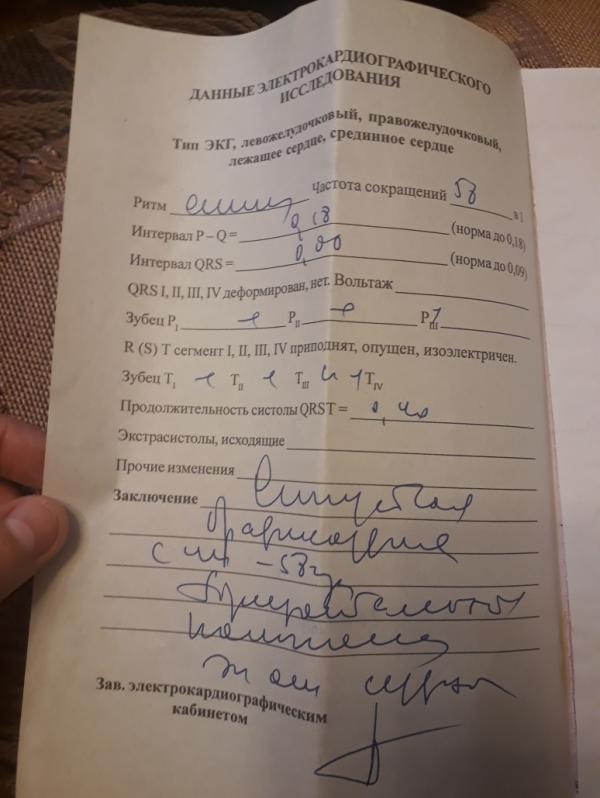 ДАННЫЕ ЭЛЕКТРОКАРДИОГРАФИЧЕСКОГО
ИССЛЕДОВАНИЯ
Тип ЭКГ, левожелудочковый, правожелудочковый,
лежащее сердце, срединное сердце
Ритм синус Частота сокращений 58 в 1
Интервал P – Q = 0,18 (норма до 0,18)
Интервал QRS = (норма до 0,09)
QRS I, II, III, IV деформирован, нет. Вольтаж
Зубец P I P II P III
R (S) T сегмент I, II, III, IV приподнят, опущен, изоэлектричен.
Зубец T I T II T III T IV
Продолжительность систолы QRST = 0,40
Экстрасистолы, исходящие
Прочие изменения
Заключение Синусовая
брадикардия
с чсс – 58
Зав. электрокардиографическим
кабинетом